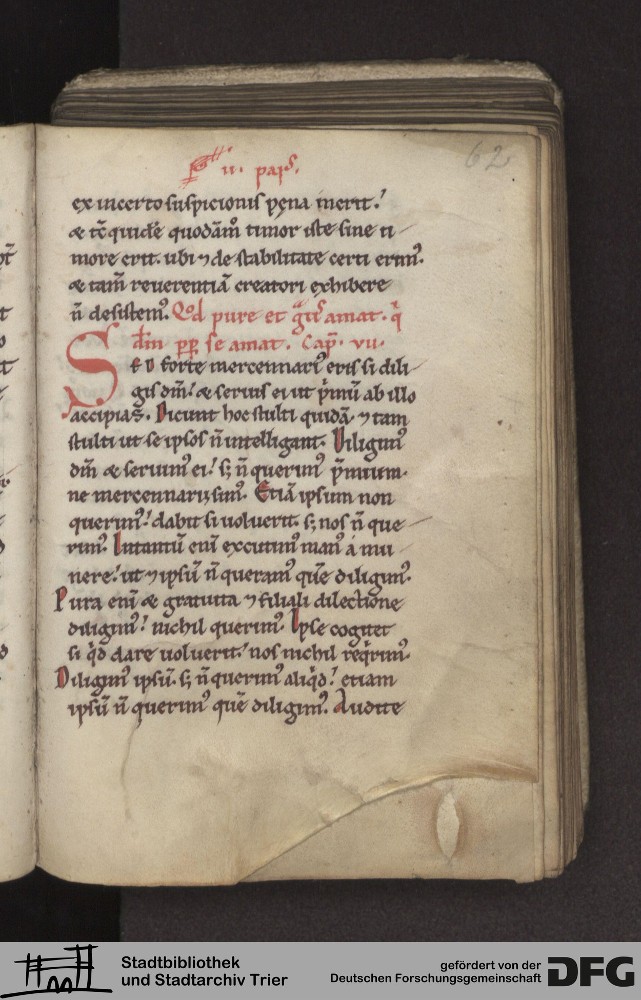 62
ii. pars.
ex incerto suspicionis pęna inerit.'
⁊ tc̄ quidē quodāmͦ timor iste sine ti-
more erit. ubi ⁊ de stabilitate certi erimꝰ.
⁊ tam̄ reuerentiā creatori exhibere
n̄ desistemꝰ. Qd̄ pure et gͣtis amat. qͥ
dm̄ pp̄ se amat. Cap̄. vii.
SED forte mercennariꝰ eris si dili-
gis dm̄.' ⁊ seruis ei ut p̄miū ab illo
accipias. Dicunt hoc stulti quidā. ⁊ tam
stulti ut se ipsos n̄ intelligant. Diligimꝰ
dm̄ ⁊ seruimꝰ ei.' sꝫ n̄ querimꝰ p̄mium.
ne mercennarii simꝰ. Etiā ipsum non
querimꝰ.' dabit si uoluerit. sꝫ nos n̄ que-
rimꝰ. Intantū eni excutimꝰ manꝰ a mu-
nere.' ut ⁊ ipsū n̄ queramꝰ quē diligimꝰ.
Pura eni ⁊ gratuita ⁊ filiali dilectione
diligimꝰ.' nichil querimꝰ. Ipse cogitet
si qͥd dare uoluerit.' nos nichil reqͥrimꝰ.
Diligimꝰ ipsū. sꝫ n̄ querimꝰ aliqͥd.' etiam
ipsū n̄ querimꝰ quē diligimꝰ. Audite
Stadtbibliothek
und Stadtarchiv Trier
gefördert von der
Deutschen Forschungsgemeinschaft
DFG